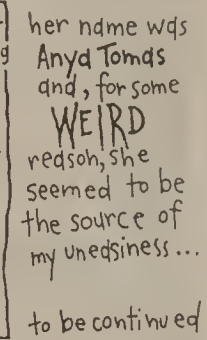 her name was
Anya Tomas
and, for some
WEIRD
reason, she
seemed to be
the source of
my uneasiness...
to be continued